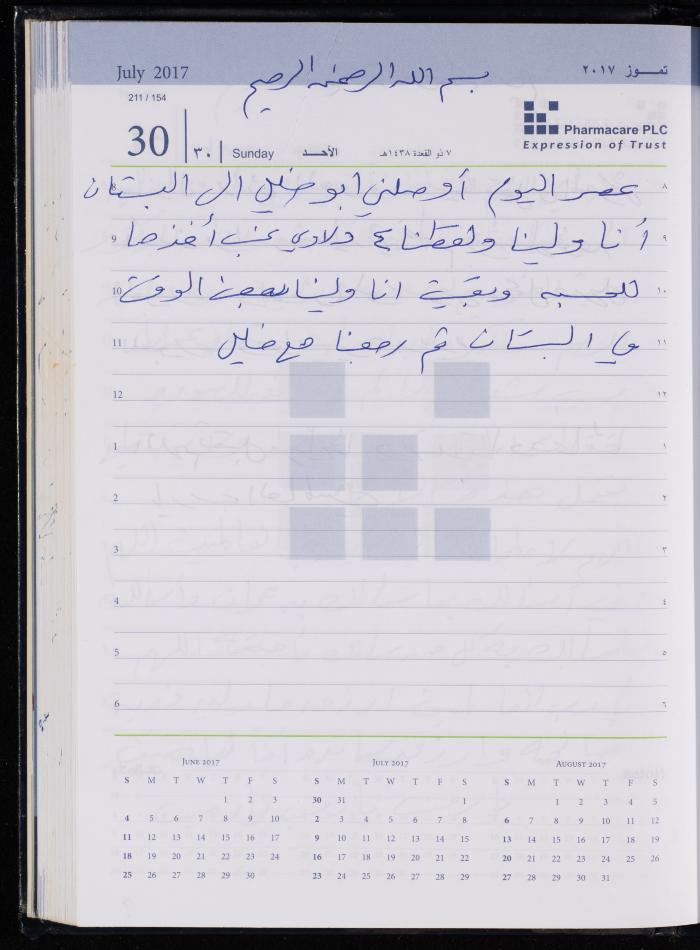 July 2017
بسم الله الرحمن الرحيم
تمـــوز ٢٠١٧
211 / 154
30
٣٠
Sunday
الأحـــد
٧ ذو القعدة ١٤٣٨هـ
Pharmacare PLC
Expression of Trust
8 عصر اليوم أوصلني ابو خليل الى البستان ٨
9 أنا ولينا ولقطنا ٤ دلاوي عنب أخذها ٩
10 للحسبه وبقيت انا ولينا بعض الوقت ١٠
11 في البستان ثم رجعنا مع خليل ١١
12 ١٢
1 ١
2 ٢
3 ٣
4 ٤
5 ٥
6 ٦
JUNE 2017
S M T W T F S
1 2 3
4 5 6 7 8 9 10
11 12 13 14 15 16 17
18 19 20 21 22 23 24
25 26 27 28 29 30
JULY 2017
S M T W T F S
30 31 1
2 3 4 5 6 7 8
9 10 11 12 13 14 15
16 17 18 19 20 21 22
23 24 25 26 27 28 29
AUGUST 2017
S M T W T F S
1 2 3 4 5
6 7 8 9 10 11 12
13 14 15 16 17 18 19
20 21 22 23 24 25 26
27 28 29 30 31